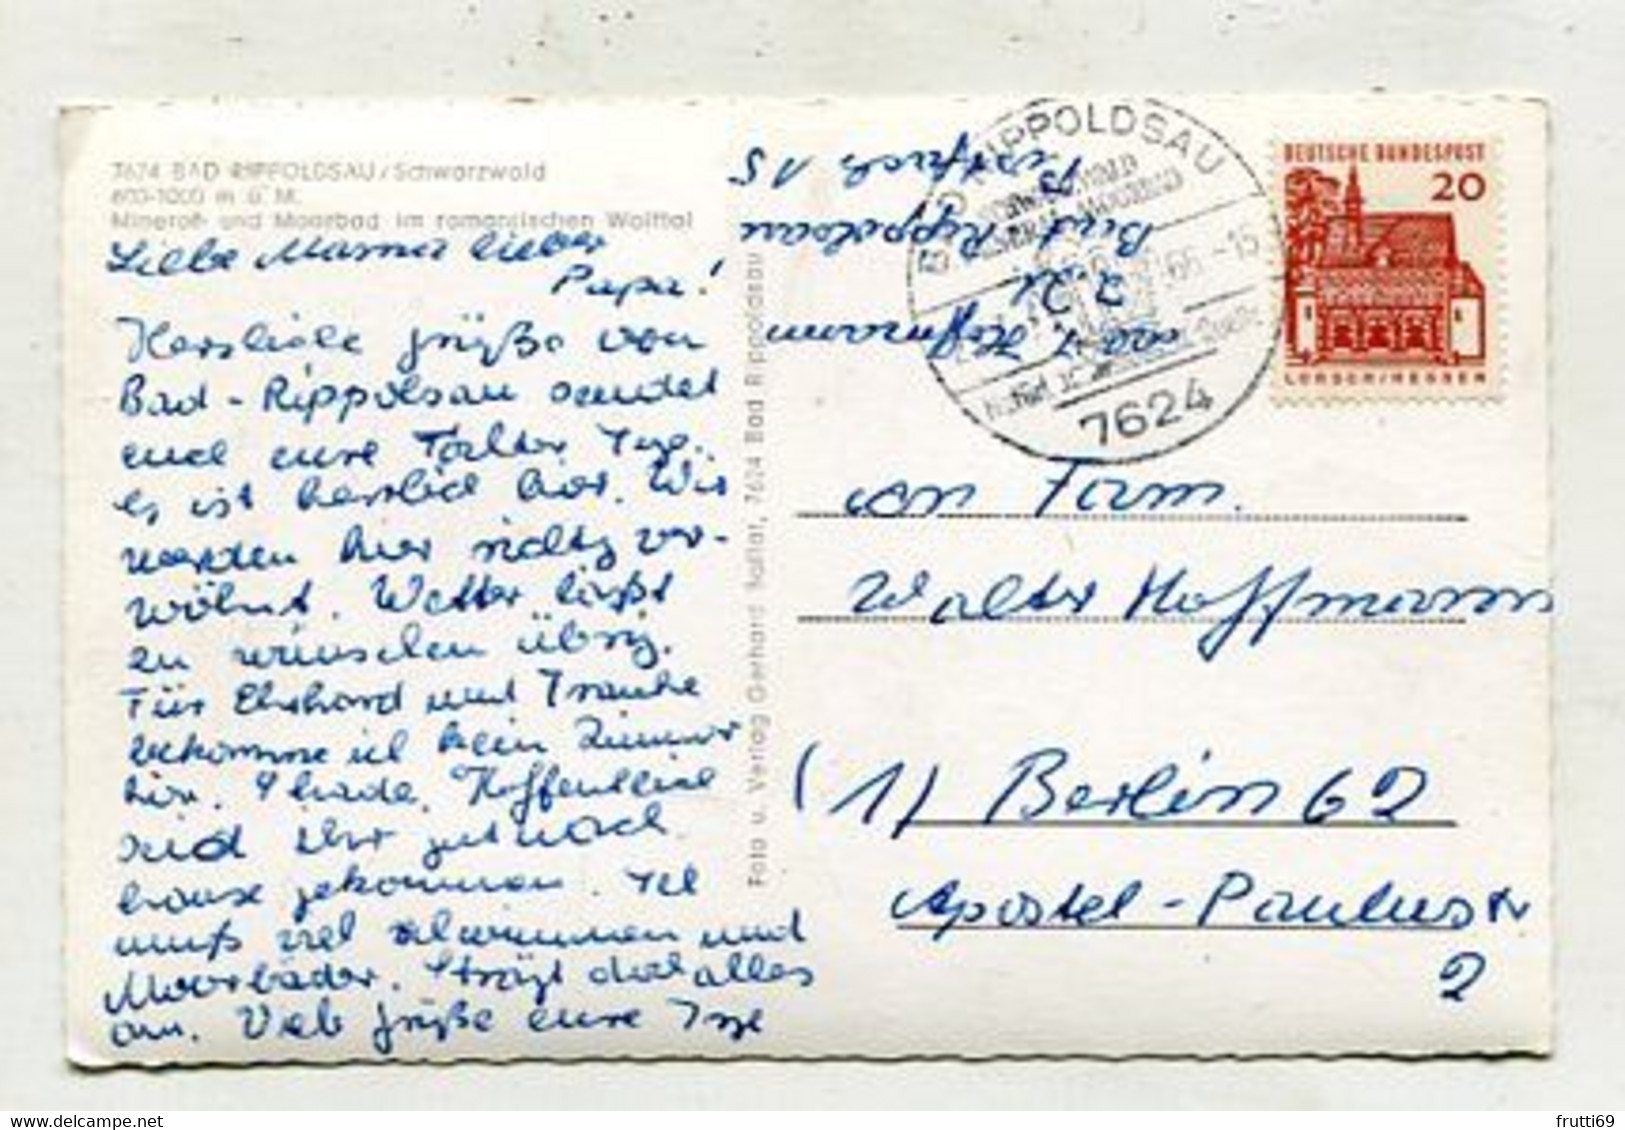 7624 BAD RIPPOLDSAU/Schwarzwald
600-1000 m ü. M.
Mineral- und Moorbad im romantischen Wolftal
Liebe Mama lieber
Papa!
Herzliche Grüße von
Bad-Rippolsau sendet
euch eure Tochter Inge.
Es ist herrlich hier. Wir
werden hier richtig ver-
wöhnt. Wetter läßt
zu wünschen übrig.
Für Ehrhard und Frauke
bekomme ich kein Zimmer
hier. Schade. Hoffentlich
seid ihr gut nach
hause gekommen. Ich
muß viel schwimmen und
Moorbäder. Strägt doch alles
an. Viele Grüße eure Inge
Foto u. Verlag Gerhard 7624 Bad Rippoldsau
BAD RIPPOLDSAU
66.-15
7624
DEUTSCHE BUNDESPOST
20
LORSCH/HESSEN
Hoffmann
z.Zt.
Bad Rippolsau
15
an Fam.
Walter Hoffmann
(1) Berlin 62
Apostel-Paulusstr
2
frutti69